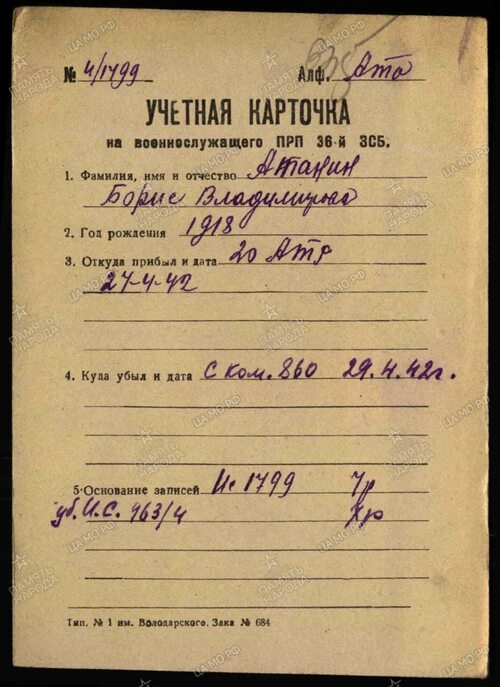 № 4/1799 Алф. Ата
УЧЕТНАЯ КАРТОЧКА
на военнослужащего ПРП 36-й ЗСБ.
1. Фамилия, имя и отчество Атанин
Борис Владимиров
2. Год рождения 1918
3. Откуда прибыл и дата 20 Атр
27-4-42
4. Куда убыл и дата с ком. 860 29.4.42г.
5. Основание записей Ис 1799
уб. И.С. 963/4
Тип. № 1 им. Володарского. Зак. № 684
ПАМЯТЬ НАРОДА
ЦАМО.РФ